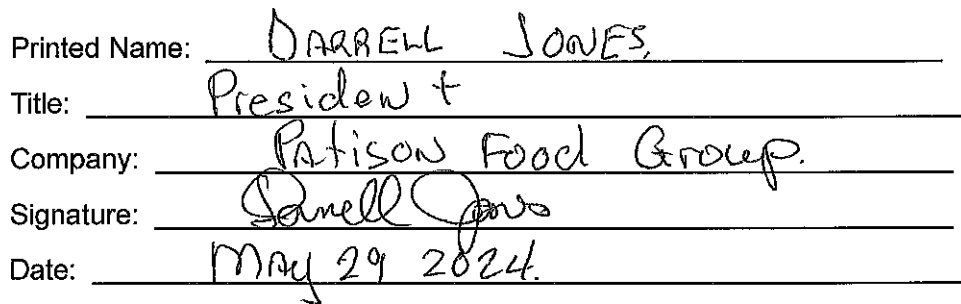 Printed Name: DARRELL JONES.
Title: President
Company: PAtisoN Food Group.
Signature: Darrell Jones
Date: MAy 29 2024.